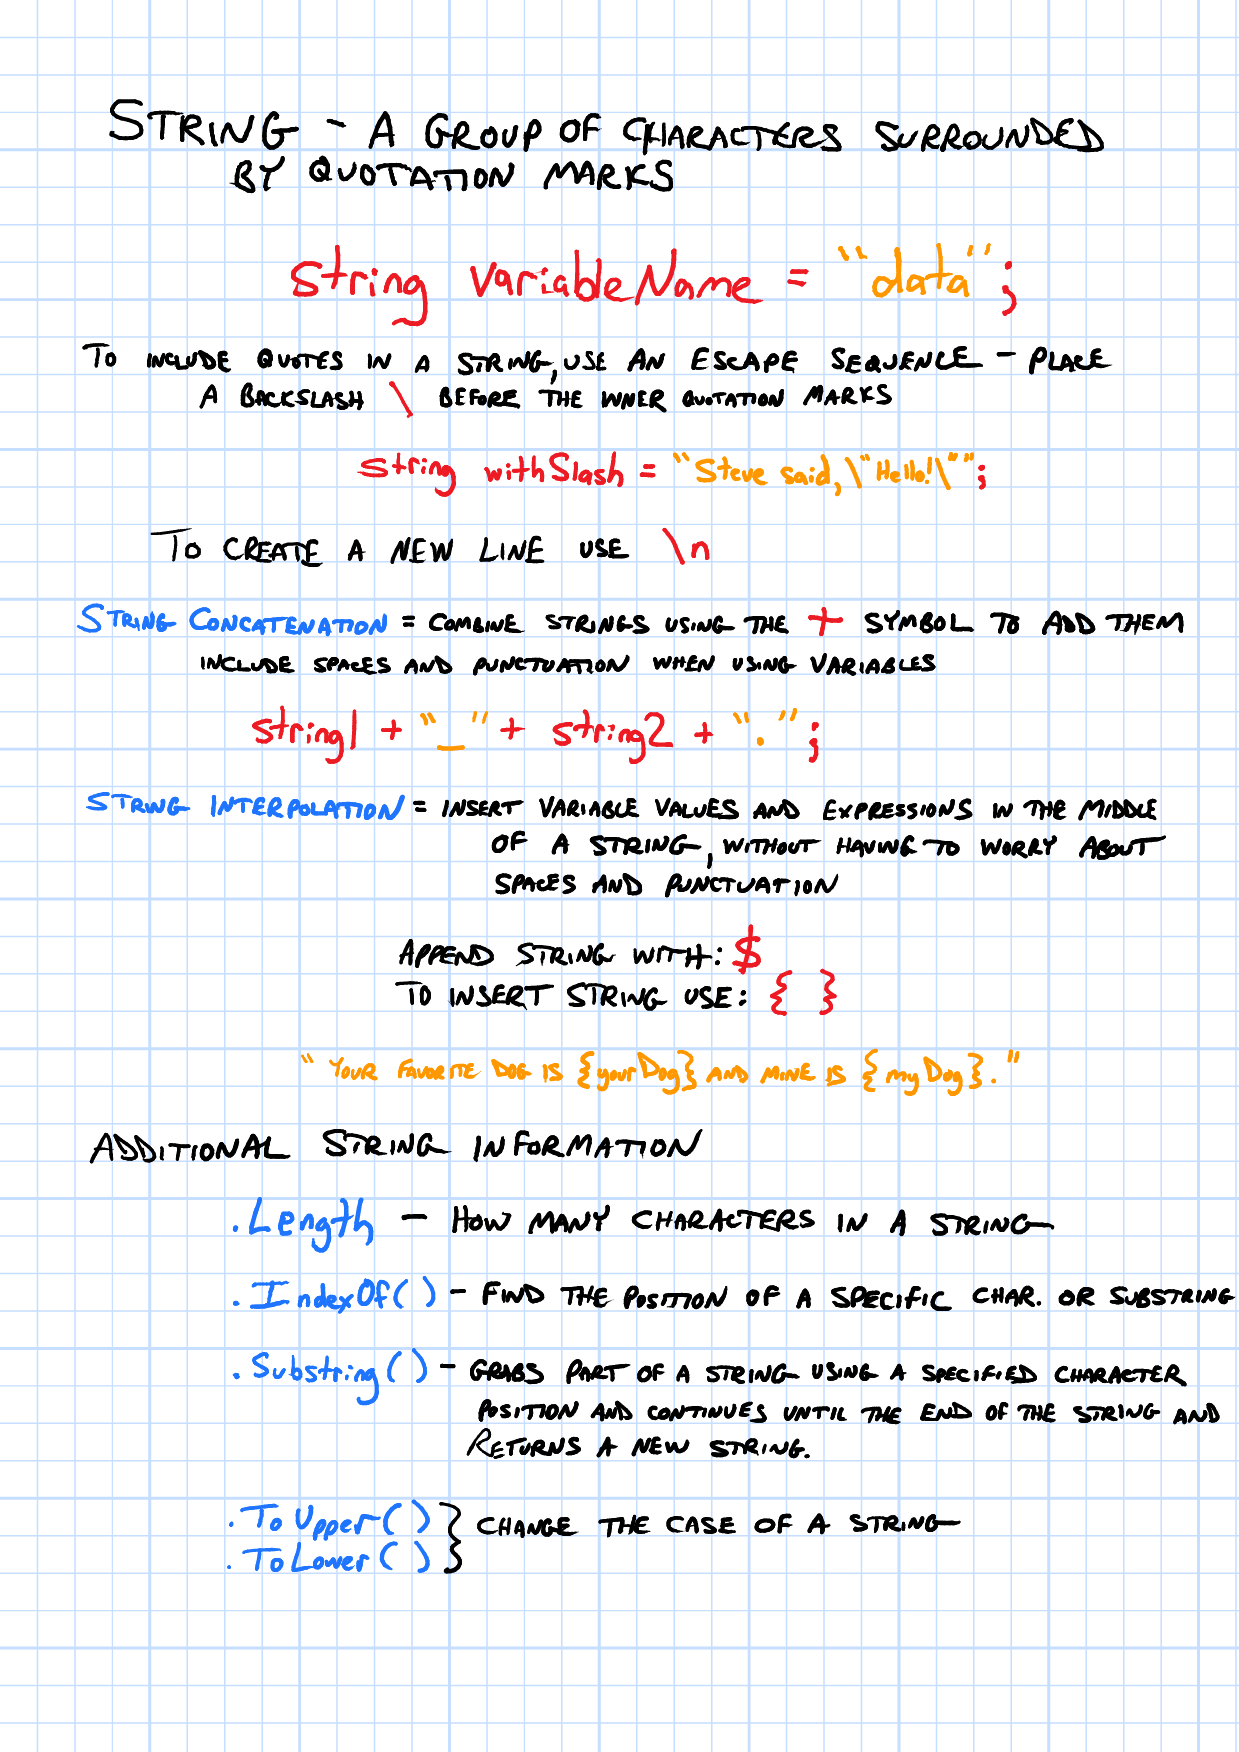 STRING - A GROUP OF CHARACTERS SURROUNDED
BY QUOTATION MARKS
string variableName = "data";
TO INCLUDE QUOTES IN A STRING, USE AN ESCAPE SEQUENCE - PLACE
A BACKSLASH \ BEFORE THE INNER QUOTATION MARKS
string withSlash = "Steve said, \"Hello!\"";
TO CREATE A NEW LINE USE \n
STRING CONCATENATION = COMBINE STRINGS USING THE + SYMBOL TO ADD THEM
INCLUDE SPACES AND PUNCTUATION WHEN USING VARIABLES
string1 + "_" + string2 + ".";
STRING INTERPOLATION = INSERT VARIABLE VALUES AND EXPRESSIONS IN THE MIDDLE
OF A STRING, WITHOUT HAVING TO WORRY ABOUT
SPACES AND PUNCTUATION
APPEND STRING WITH: $
TO INSERT STRING USE: { }
"YOUR FAVORITE DOG IS {yourDog} AND MINE IS {myDog}."
ADDITIONAL STRING INFORMATION
.Length - HOW MANY CHARACTERS IN A STRING
.IndexOf() - FIND THE POSITION OF A SPECIFIC CHAR. OR SUBSTRING
.Substring() - GRABS PART OF A STRING USING A SPECIFIED CHARACTER
POSITION AND CONTINUES UNTIL THE END OF THE STRING AND
RETURNS A NEW STRING.
.ToUpper() } CHANGE THE CASE OF A STRING
.ToLower()